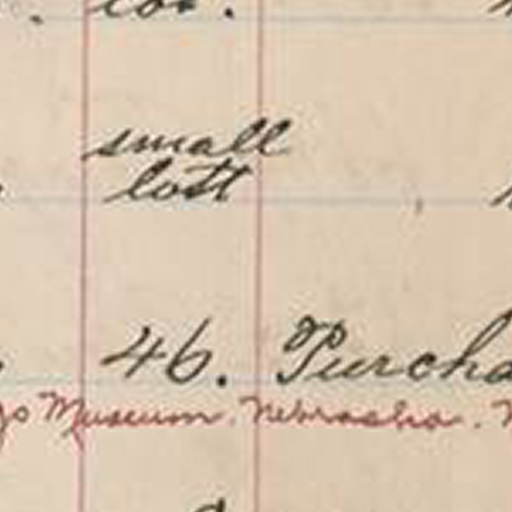 small
lott
46. Purcha
Museum, Nebraska.